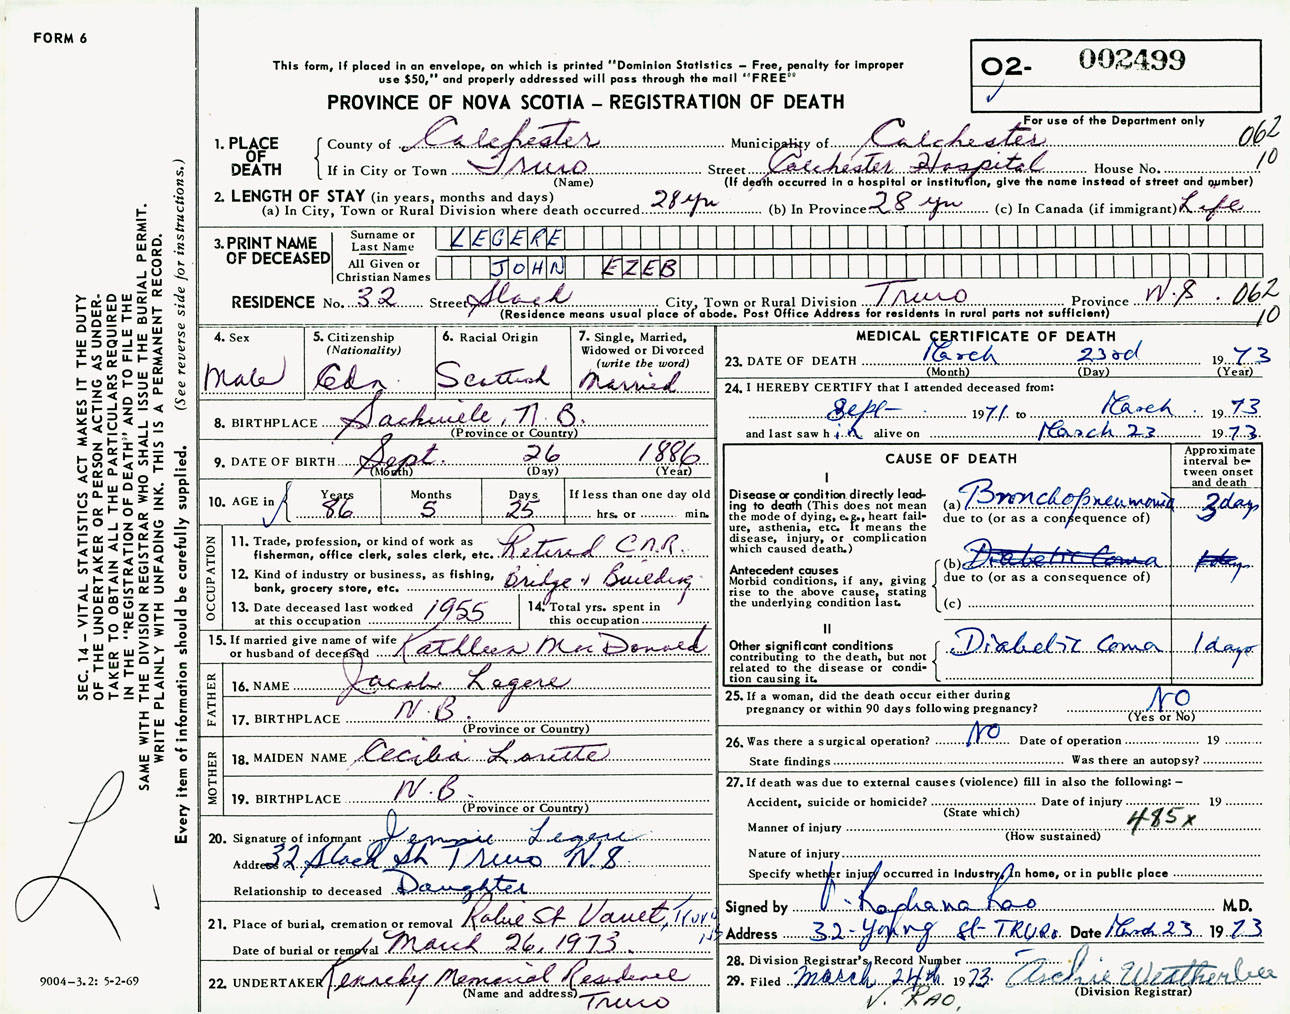 FORM 6
This form, if placed in an envelope, on which is printed "Dominion Statistics – Free, penalty for improper
use $50," and properly addressed will pass through the mail "FREE"
PROVINCE OF NOVA SCOTIA – REGISTRATION OF DEATH
O2- 002499
For use of the Department only
1. PLACE OF DEATH
County of Colchester Municipality of Colchester 062
If in City or Town Truro Street Colchester Hospital House No. 10
(Name) (If death occurred in a hospital or institution, give the name instead of street and number)
2. LENGTH OF STAY (in years, months and days)
(a) In City, Town or Rural Division where death occurred 28 yrs (b) In Province 28 yrs (c) In Canada (if immigrant) Life
3. PRINT NAME OF DECEASED
Surname or Last Name LEGERE
All Given or Christian Names JOHN EZEB
RESIDENCE No. 32 Street Slack City, Town or Rural Division Truro Province N.S. 062
(Residence means usual place of abode. Post Office Address for residents in rural parts not sufficient) 10
4. Sex
Male
5. Citizenship (Nationality)
Cdn.
6. Racial Origin
Scottish
7. Single, Married, Widowed or Divorced (write the word)
Married
8. BIRTHPLACE Sackville, N.B.
(Province or Country)
9. DATE OF BIRTH Sept. 26 1886
(Month) (Day) (Year)
10. AGE in Years 86 Months 5 Days 25 If less than one day old
hrs. or min.
OCCUPATION
11. Trade, profession, or kind of work as fisherman, office clerk, sales clerk, etc. Retired C.N.R.
12. Kind of industry or business, as fishing, bank, grocery store, etc. Bridge & Building
13. Date deceased last worked at this occupation 1955
14. Total yrs. spent in this occupation
15. If married give name of wife or husband of deceased Kathleen MacDonald
FATHER
16. NAME Jacob Legere
17. BIRTHPLACE N.B.
(Province or Country)
MOTHER
18. MAIDEN NAME Cecilia Lorette
19. BIRTHPLACE N.B.
(Province or Country)
20. Signature of informant Jennie Legere
Address 32 Slack St Truro N.S
Relationship to deceased Daughter
21. Place of burial, cremation or removal Robie St Vault, Truro
Date of burial or removal March 26, 1973.
22. UNDERTAKER Memorial Residence
(Name and address) Truro
MEDICAL CERTIFICATE OF DEATH
23. DATE OF DEATH March 23rd 1973
(Month) (Day) (Year)
24. I HEREBY CERTIFY that I attended deceased from:
Sept 1971 to March 1973
and last saw him alive on March 23 1973.
CAUSE OF DEATH
Approximate interval between onset and death
I
Disease or condition directly leading to death (This does not mean the mode of dying, e.g., heart failure, asthenia, etc. It means the disease, injury, or complication which caused death.)
(a) Bronchopneumonia 3 days
due to (or as a consequence of)
Antecedent causes
Morbid conditions, if any, giving rise to the above cause, stating the underlying condition last.
(b) Diabetic Coma 1 day
due to (or as a consequence of)
(c)
II
Other significant conditions
contributing to the death, but not related to the disease or condition causing it.
Diabetic Coma 1 days
25. If a woman, did the death occur either during
pregnancy or within 90 days following pregnancy? NO
(Yes or No)
26. Was there a surgical operation? NO Date of operation 19
State findings Was there an autopsy?
27. If death was due to external causes (violence) fill in also the following: –
Accident, suicide or homicide? Date of injury 19
(State which)
Manner of injury 485x
(How sustained)
Nature of injury
Specify whether injury occurred in Industry, In home, or in public place
Signed by V. Raghava Rao M.D.
Address 32-Young St-TRURO Date March 23 1973
28. Division Registrar's Record Number
29. Filed March 24th 1973 Archie Weatherbee
(Division Registrar)
V. RAO.
SEC. 14 – VITAL STATISTICS ACT MAKES IT THE DUTY
OF THE UNDERTAKER OR PERSON ACTING AS UNDERTAKER
TO OBTAIN ALL THE PARTICULARS REQUIRED
IN THE "REGISTRATION OF DEATH" AND TO FILE THE
SAME WITH THE DIVISION REGISTRAR WHO SHALL ISSUE THE BURIAL PERMIT.
WRITE PLAINLY WITH UNFADING INK. THIS IS A PERMANENT RECORD.
Every item of information should be carefully supplied. (See reverse side for instructions.)
9004-3.2: 5-2-69